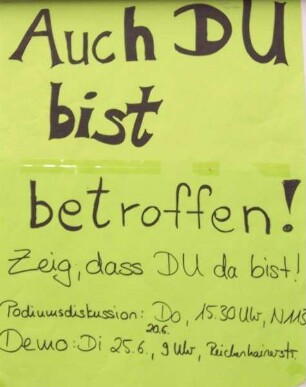 Auch DU
bist
betroffen!
Zeig, dass DU da bist!
Podiumsdiskussion: Do, 15.30 Uhr, N113
20.6.
Demo: Di 25.6., 9 Uhr, Reichenhainerstr.